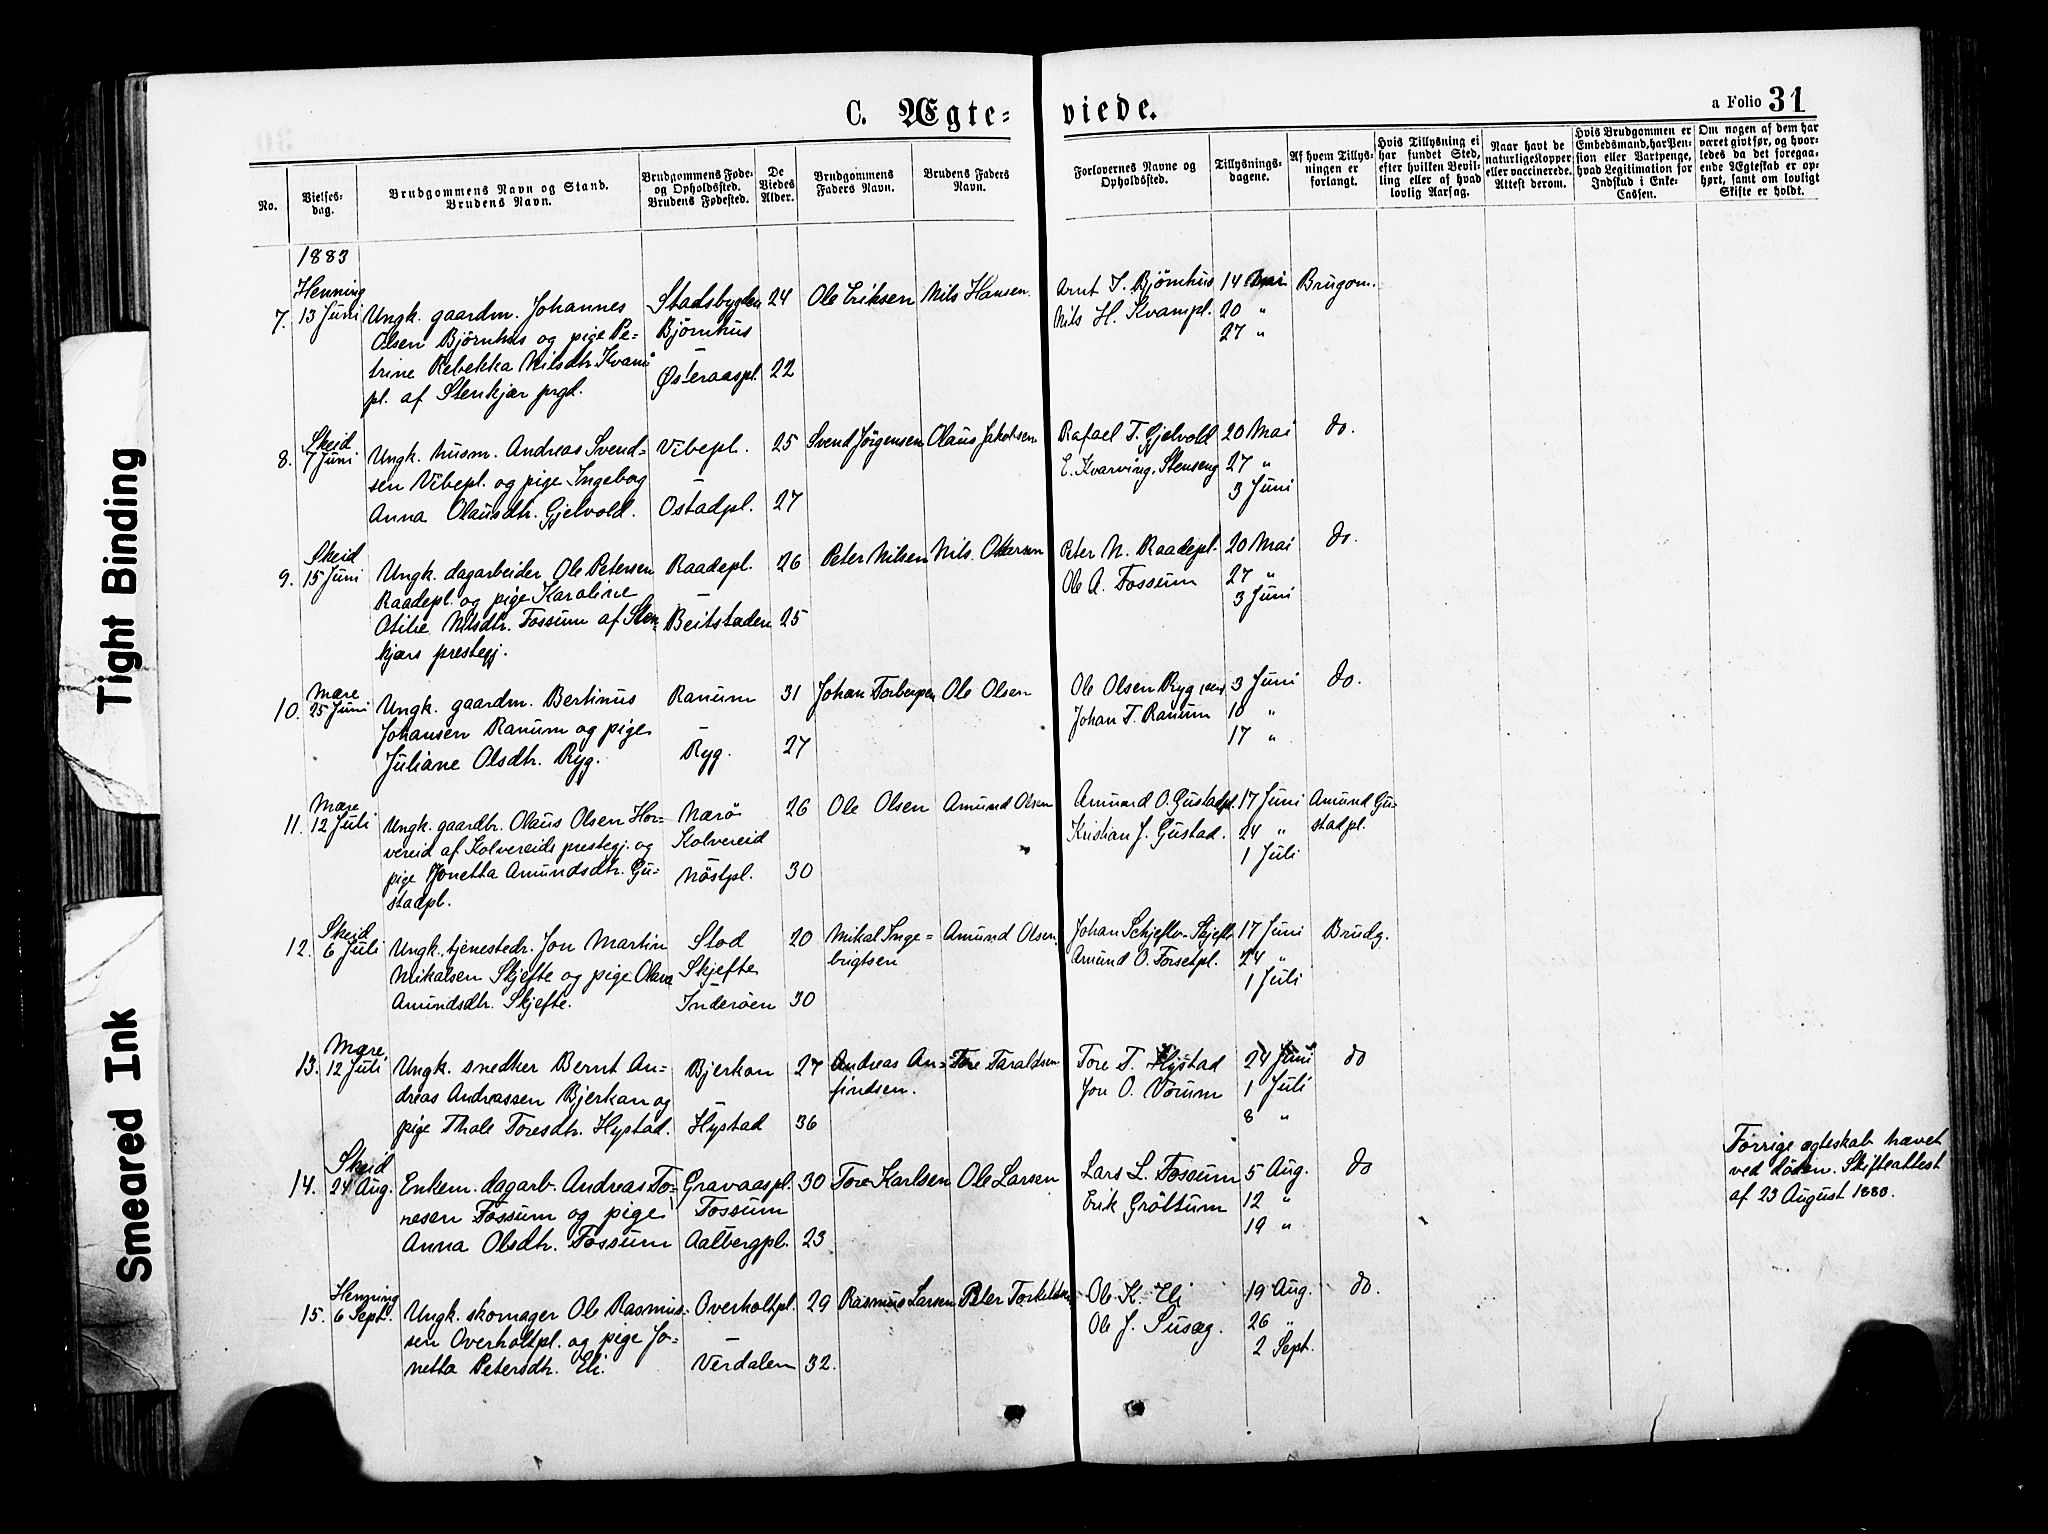 Tight Binding
Smeared Ink
C. Ægte-
viede.
a Folio 31
No.
Vielses-
dag.
Brudgommens Navn og Stand.
Brudens Navn.
Brudgommens Føde-
og Opholdssted.
Brudens Fødested.
De
Viedes
Alder.
Brudgommens
Faders Navn.
Brudens Faders
Navn.
Forlovernes Navne og
Opholdssted.
Tillysnings-
dagene.
Af hvem Tillys-
ningen er
forlangt.
Hvis Tillysning ei
har fundet Sted,
efter hvilken Bevil-
ling eller af hvad
lovlig Aarsag.
Naar havt de
naturlige Kopper
eller vaccinerede.
Attest derom.
Hvis Brudgommen er
Embedsmand, har Pen-
sion eller Vartpenge,
hvad Legitimation for
Indskud i Enke-
Cassen.
Om nogen af dem har
været gift før, og hvor-
ledes da det foregaa-
ende Ægteskab er op-
hørt, samt om lovligt
Skifte er holdt.
1883
7.
Henning
13 Juni
Ungk. gaardm. Johannes
Olsen Bjørnhus og pige Pe-
trine Rebekka Nilsdtr. Kvam
pl. af Stenkjær prgd.
Stadsbygden
Bjørnhus
-
Østeraaspl.
24
22
Ole Eriksen
Nils Hansen.
Arnt J. Bjørnhus
Nils H. Kvampl.
14 Mai
20 "
27 "
Brugom.
8.
Skeid
7 Juni
Ungk. husm. Andreas Svend-
sen Vibepl. og pige Ingeborg
Anna Olausdtr. Gjelvold.
Vibepl.
-
Østadpl.
25
27
Svend Jørgensen
Olaus Jakobsen
Rafael T. Gjelvold
E. Kvarving. Stenseng
20 Mai
27 "
3 Juni
do.
9.
Skeid
15 Juni
Ungk. dagarbeider Ole Petersen
Raadepl. og pige Karoline
Otilie Nilsdtr. Fossum af Sten-
kjærs prestegj.
Raadepl.
-
Beitstaden
26
25
Peter Nilsen
Nils Ottersen
Peter N. Raadepl.
Ole A. Fossum
20 Mai
27 "
3 Juni
do.
10.
Mære
25 Juni
Ungk. gaardm. Bertinus
Johansen Ranum og pige
Juliane Olsdtr. Ryg.
Ranum
-
Ryg.
31
27
Johan Torbergsen
Ole Olsen
Ole Olsen Ryg
Johan T. Ranum
3 Juni
10 "
17 "
do.
11.
Mære
12 Juli
Ungk. gaardbr. Olaus Olsen Hor-
vereid af Kolvereids prestegj. og
pige Jonetta Amundsdtr. Gu-
stadpl.
Nærø
Kolvereid
Nøstpl.
26
30
Ole Olsen
Amund Olsen
Amund O. Gustadpl.
Kristian J. Gustad.
17 Juni
24 "
1 Juli
Amund Gu-
stadpl.
12.
Skeid
6 Juli
Ungk. tjenestedr. Jon Martin
Mikalsen Skjefte og pige Olava
Amundsdtr. Skjefte.
Stod
Skjefte
-
Inderøen
20
30
Mikal Inge-
brigtsen
Amund Olsen.
Johan Schjefte. Skjefte
Amund O. Forsetpl.
17 Juni
24 "
1 Juli
Brudg.
13.
Mære
12 Juli
Ungk. snedker Bernt An-
dreas Andreassen Bjerkan og
pige Thale Toresdtr. Hystad.
Bjerkan
-
Hystad
27
36
Andreas An-
findsen.
Tore Taraldsen
Tore T. Hystad
Jon O. Vorum
24 Juni
1 Juli
8 "
do
14.
Skeid
24 Aug.
Enkem. dagarb. Andreas To-
resen Fossum og pige
Anna Olsdtr. Fossum
Gravaaspl.
Fossum
Aalbergpl.
30
23
Tore Karlsen
Ole Larsen
Lars L. Fossum
Erik Grøttum
5 Aug.
12 "
19 "
do
Forrige ægteskab hævet
ved døden. Skifteattest
af 23 August 1880.
15.
Henning
6 Sept.
Ungk. skomager Ole Rasmus-
sen Overholtpl. og pige Jo-
netta Petersdtr. Eli.
Overholtpl.
-
Verdalen
29
32.
Rasmus Larsen
Peter Torkildsen
Ole K. Eli
Ole J. Susæg.
19 Aug.
26 "
2 Sept.
do.